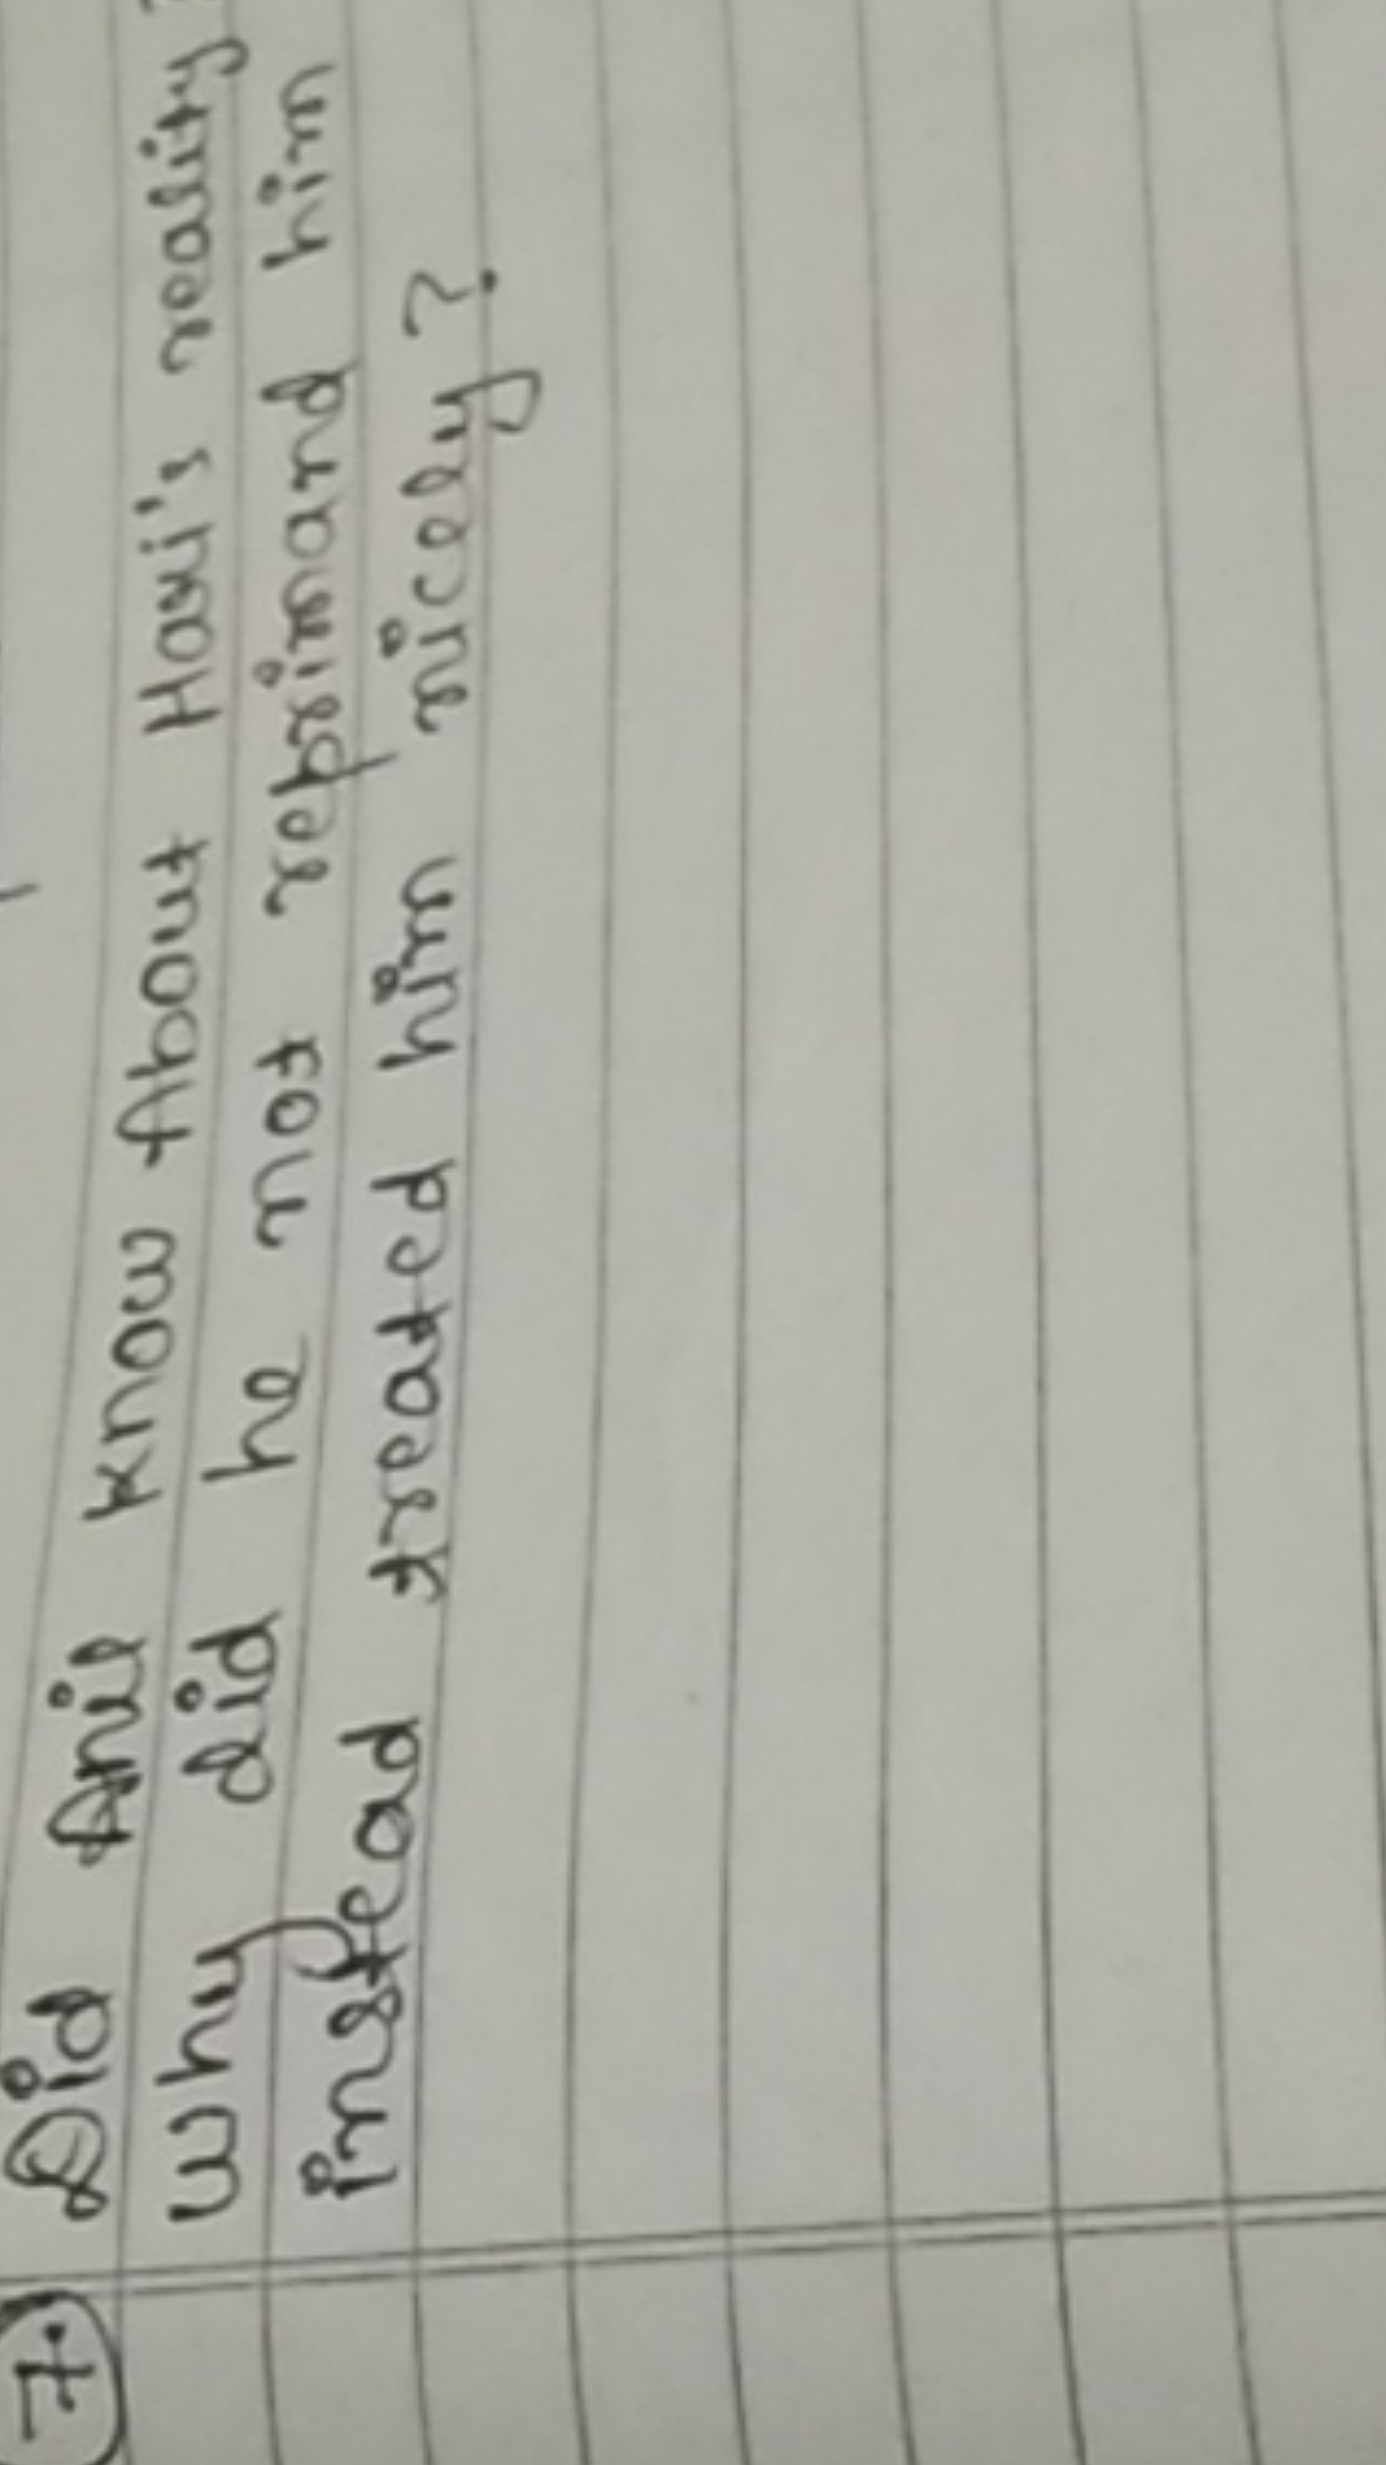 7. Did Anil know About Hari's reality?
Why did he not reprimand him
instead treated him nicely?